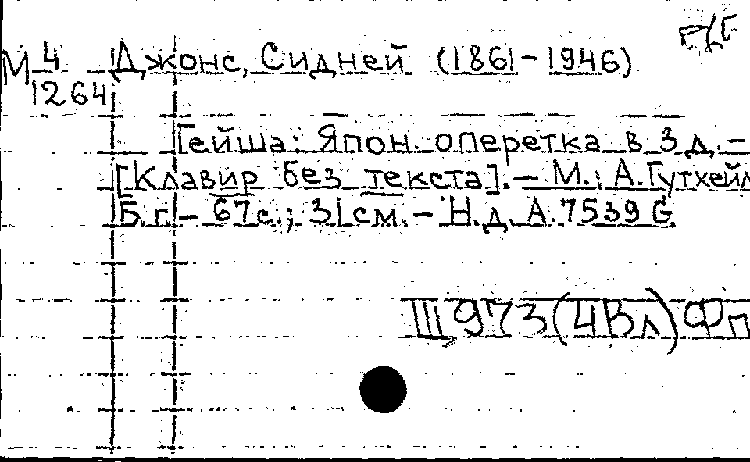 М 4 Джонс, Сидней (1861-1946)
1264
Гейша: Япон. оперетка в 3 д. –
[Клавир без текста]. – М.: А. Гутхейл
Б.г. – 67с.; 31см. – Н.д. А. 7539 G.
III 973 (4Вл) Фп